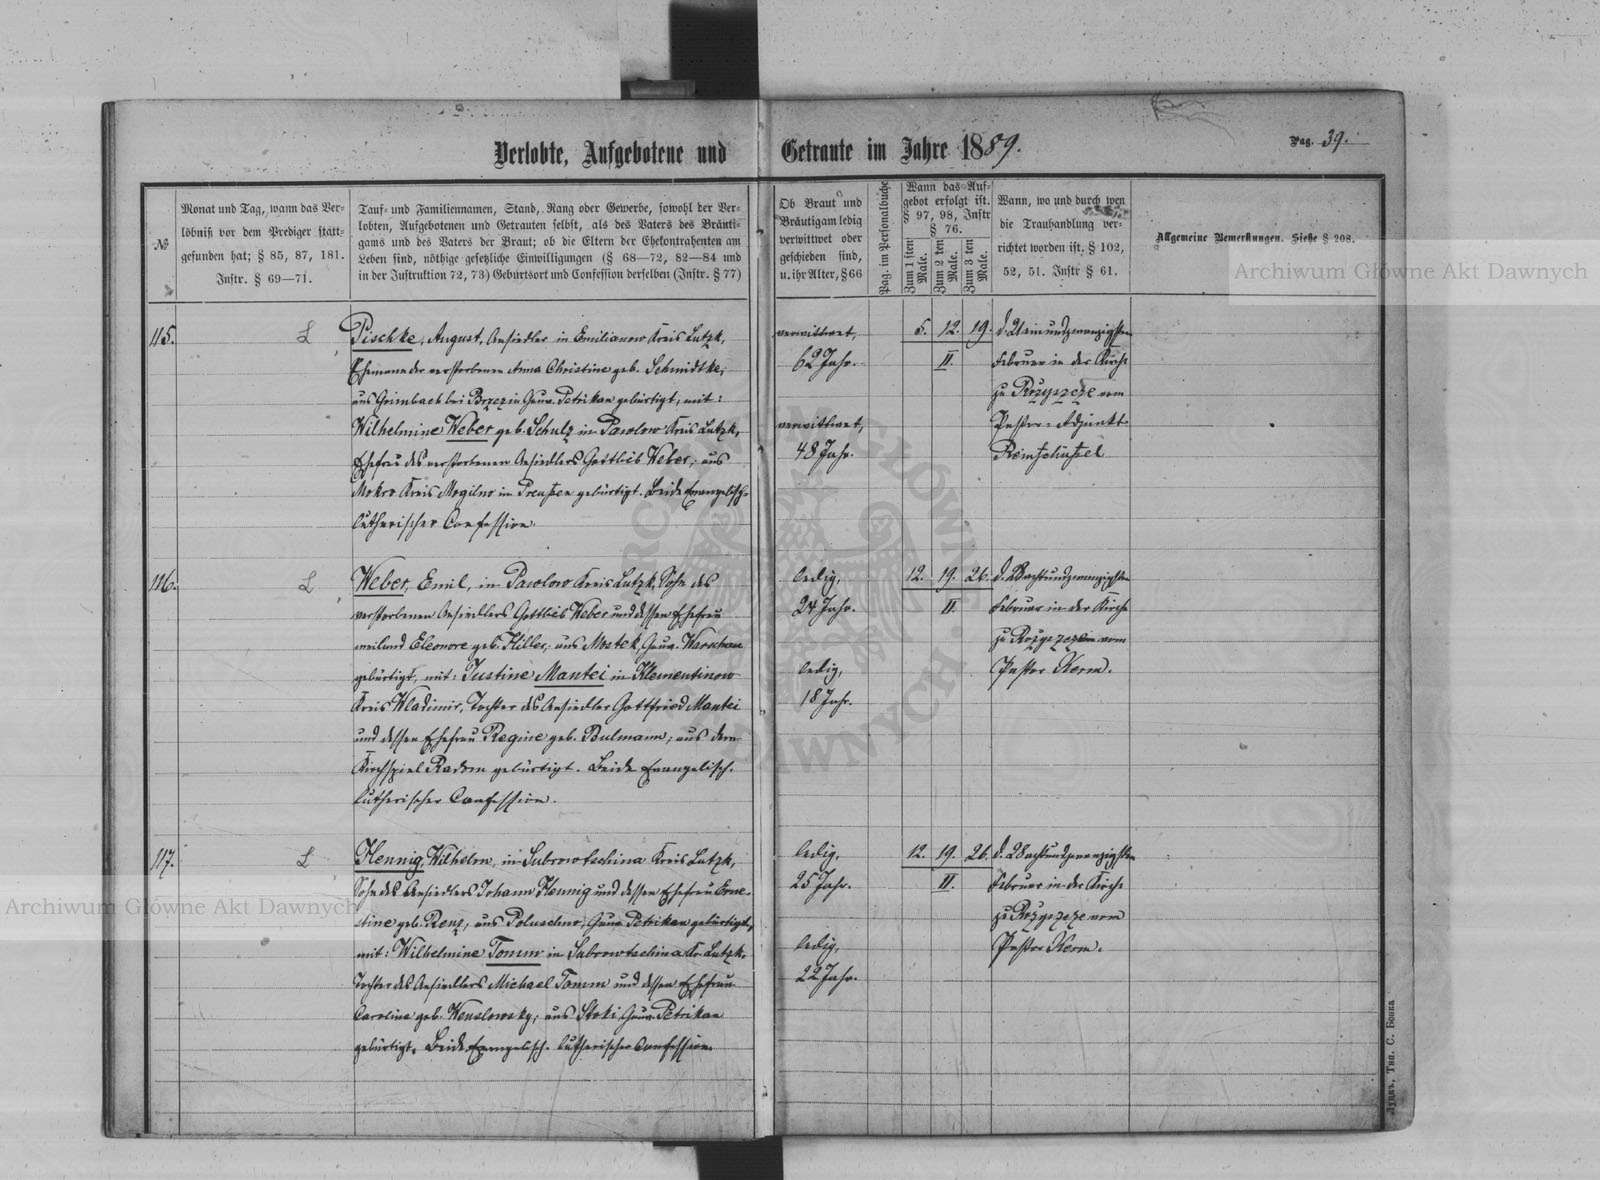 Verlobte, Aufgebotene und Getraute im Jahre 1889.
Pag. 39.
№
Monat und Tag, wann das Ver-
löbniß vor dem Prediger statt-
gefunden hat; § 85, 87, 181.
Instr. § 69—71.
Tauf- und Familiennamen, Stand, Rang oder Gewerbe, sowohl der Ver-
lobten, Aufgebotenen und Getrauten selbst, als des Vaters des Bräuti-
gams und des Vaters der Braut; ob die Eltern der Ehekontrahenten am
Leben sind, nöthige gesetzliche Einwilligungen (§ 68—72, 82—84 und
in der Instruktion 72, 73) Geburtsort und Confession derselben (Instr. § 77)
Ob Braut und
Bräutigam ledig
verwittwet oder
geschieden sind,
u. ihr Alter, § 66
Pag. im Personalbuche
Wann das Auf-
gebot erfolgt ist.
§ 97, 98, Instr
§ 76.
Zum 1 sten
Male.
Zum 2 ten
Male.
Zum 3 ten
Male.
Wann, wo und durch wen
die Trauhandlung ver-
richtet worden ist, § 102,
52, 51. Instr § 61.
Allgemeine Bemerkungen. Siehe § 208.
115.
L
Pischke, August, Ansiedler in Emilianow Kreis Lutzk,
Ehemann der verstorbenen Anna Christine geb. Schmidtke;
aus Grimbach bei Brzezin Guv. Petrikau gebürtigt, mit:
Wilhelmine Weber geb. Schulz in Pawlow Kreis Lutzk,
Ehefrau des verstorbenen Ansiedlers Gottlieb Weber; aus
Mokro Kreis Mogilno in Preußen gebürtigt. Beide Evangelisch-
lutherischer Confession.
verwittwet,
62 Jahr.
verwittwet,
48 Jahr.
5. 12. 19.
II.
d. 21 einundzwanzigsten
Februar in der Kirche
zu Rożyszcze vom
Pastor-Adjunkt
Reimschüssel
116.
L
Weber, Emil, in Pawlow Kreis Lutzk, Sohn des
verstorbenen Ansiedlers Gottlieb Weber und dessen Ehefrau
weiland Eleonore geb. Hiller; aus Mostek, Guv. Warschau
gebürtigt, mit: Justine Mantei in Klementinow
Kreis Wladimir, Tochter des Ansiedler Gottfried Mantei
und dessen Ehefrau Regine geb. Bulmann; aus dem
Kirchspiel Radom gebürtigt. Beide Evangelisch-
lutherischer Confession.
ledig,
24 Jahr.
ledig,
18 Jahr.
12. 19. 26.
II.
d. 28 achtundzwanzigsten
Februar in der Kirche
zu vom
Pastor Kerm.
117.
L
Hennig, Wilhelm, in Subrowtschina Kreis Lutzk,
Sohn des Ansiedlers Johann Hennig und dessen Ehefrau Erne-
stine geb. Renz; aus Poluschno, Guv. Petrikau gebürtigt,
mit: Wilhelmine Tomm in Subrowtschina Kr. Lutzk,
Tochter des Ansiedlers Michael Tomm und dessen Ehefrau
Caroline geb. Wenslowsky; aus Stoki Guv. Petrikau
gebürtigt. Beide Evangelisch-lutherischer Confession.
ledig,
25 Jahr.
ledig,
22 Jahr.
12. 19. 26.
II.
d. 28 achtundzwanzigsten
Februar in der Kirche
zu Rożyszcze vom
Pastor Kerm.
Луцкъ, Тип. С. Бокса
Archiwum Główne Akt Dawnych
Archiwum Główne Akt Dawnych